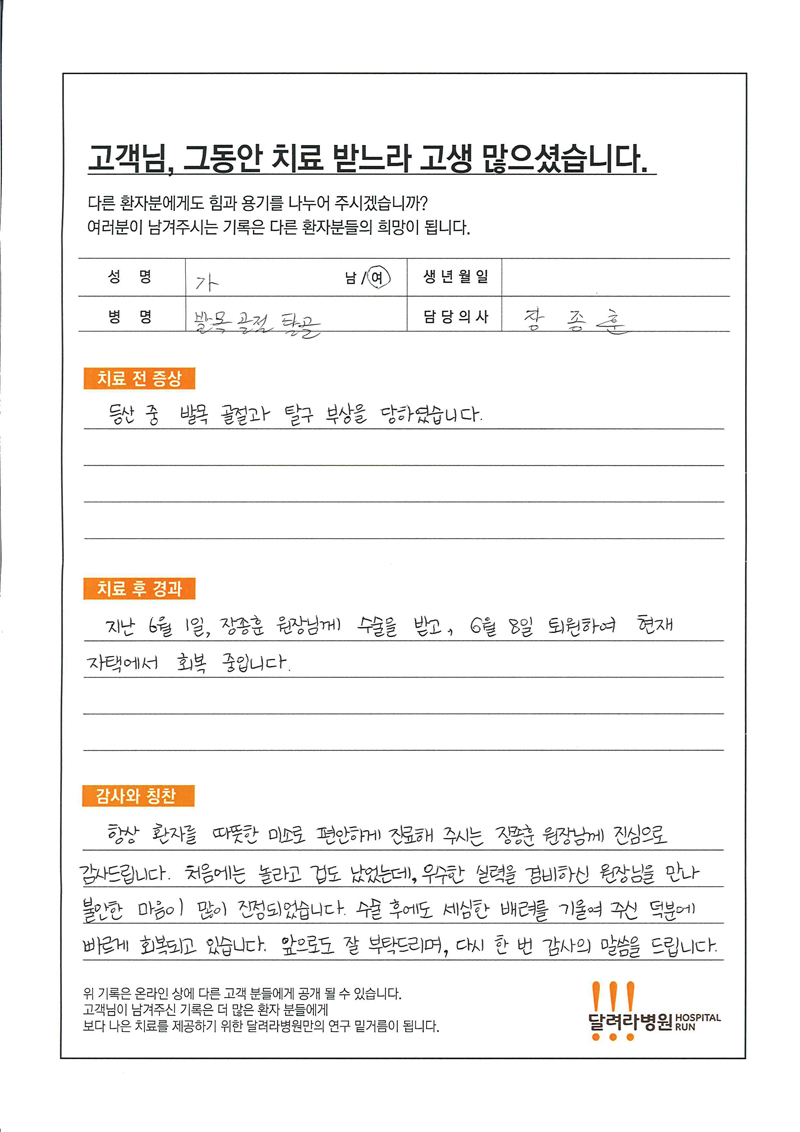 고객님, 그동안 치료 받느라 고생 많으셨습니다.
다른 환자분에게도 힘과 용기를 나누어 주시겠습니까?
여러분이 남겨주시는 기록은 다른 환자분들의 희망이 됩니다.
성 명 가 남/여 생년월일
병 명 발목 골절 탈골 담당의사 장 종 훈
치료 전 증상
등산 중 발목 골절과 탈구 부상을 당하였습니다.
치료 후 경과
지난 6월 1일, 장종훈 원장님께 수술을 받고, 6월 8일 퇴원하여 현재
자택에서 회복 중입니다.
감사와 칭찬
항상 환자를 따뜻한 미소로 편안하게 진료해 주시는 장종훈 원장님께 진심으로
감사드립니다. 처음에는 놀라고 겁도 났었는데, 우수한 실력을 겸비하신 원장님을 만나
불안한 마음이 많이 진정되었습니다. 수술 후에도 세심한 배려를 기울여 주신 덕분에
빠르게 회복되고 있습니다. 앞으로도 잘 부탁드리며, 다시 한 번 감사의 말씀을 드립니다.
위 기록은 온라인 상에 다른 고객 분들에게 공개 될 수 있습니다.
고객님이 남겨주신 기록은 더 많은 환자 분들에게
보다 나은 치료를 제공하기 위한 달려라병원만의 연구 밑거름이 됩니다.
!!!
달려라병원 HOSPITAL RUN